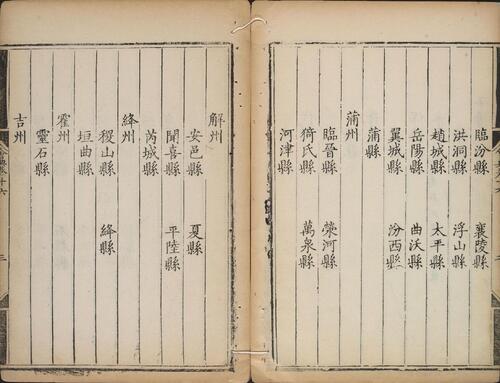 臨汾縣 襄陵縣
洪洞縣 浮山縣
趙城縣 太平縣
岳陽縣 曲沃縣
翼城縣 汾西縣
蒲縣
蒲州
臨晉縣 滎河縣
猗氏縣 萬泉縣
河津縣
解州
安邑縣 夏縣
聞喜縣 平陸縣
芮城縣
絳州
稷山縣 絳縣
垣曲縣
霍州
靈石縣
吉州